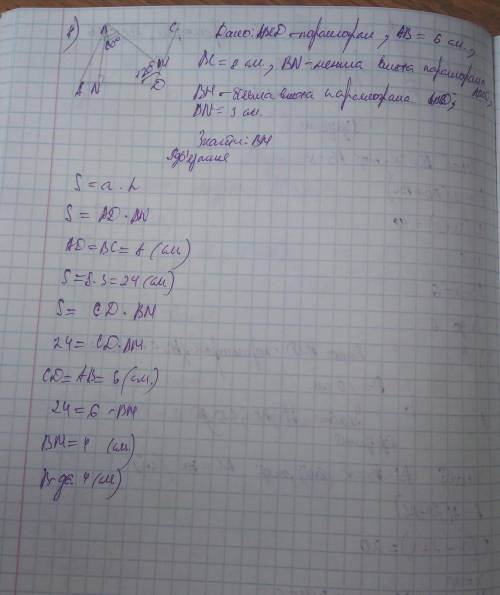 Дано: ABCD - паралограм, AB = 6 см,
BC = 8 см, BN - менша висота паралограма
BM - більша висота паралограма ABCD,
BN = 3 см.
Знайти: BM
S = a · h
S = AD · BN
AD = BC = 8 (см)
S = 8 · 3 = 24 (см)
S = CD · BM
24 = CD · BM
CD = AB = 6 (см.)
24 = 6 · BM
BM = 4 (см)
В-дь: 4 (см)